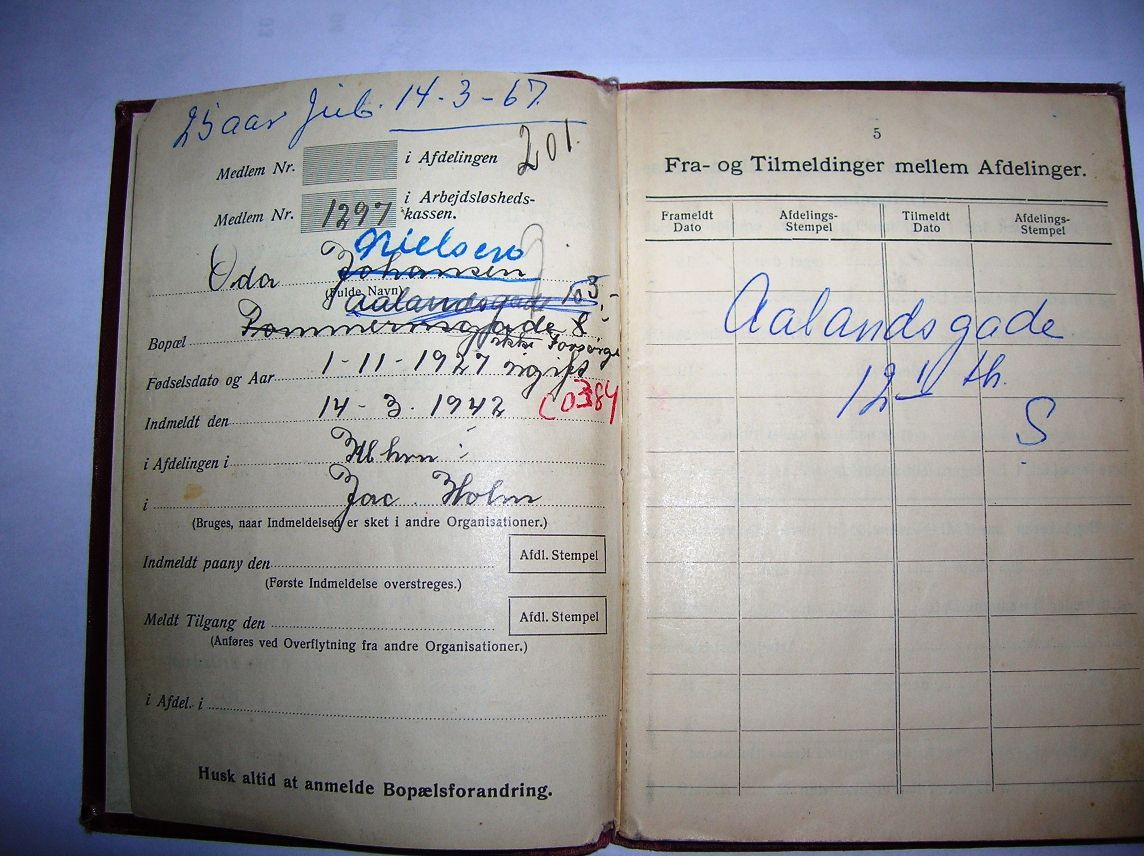 25 aar Jub. 14-3-67.
201.
Medlem Nr. i Afdelingen
Medlem Nr. 1297 i Arbejdsløsheds-
kassen.
Nielsen
Oda Johansen
(Fulde Navn)
Aalandsgade
Bopæl Pommernsgade 8
ikke Forsørger
Fødselsdato og Aar 1-11-1927 ugift
Indmeldt den 14-3-1942 C0384
i Afdelingen i Kbhvn
i Jac. Holm
(Bruges, naar Indmeldelsen er sket i andre Organisationer.)
Indmeldt paany den
Afdl. Stempel
(Første Indmeldelse overstreges.)
Meldt Tilgang den
Afdl. Stempel
(Anføres ved Overflytning fra andre Organisationer.)
i Afdel. i
Husk altid at anmelde Bopælsforandring.
5
Fra- og Tilmeldinger mellem Afdelinger.
Frameldt Dato Afdelings-Stempel Tilmeldt Dato Afdelings-Stempel
Aalandsgade
12 I th.
S